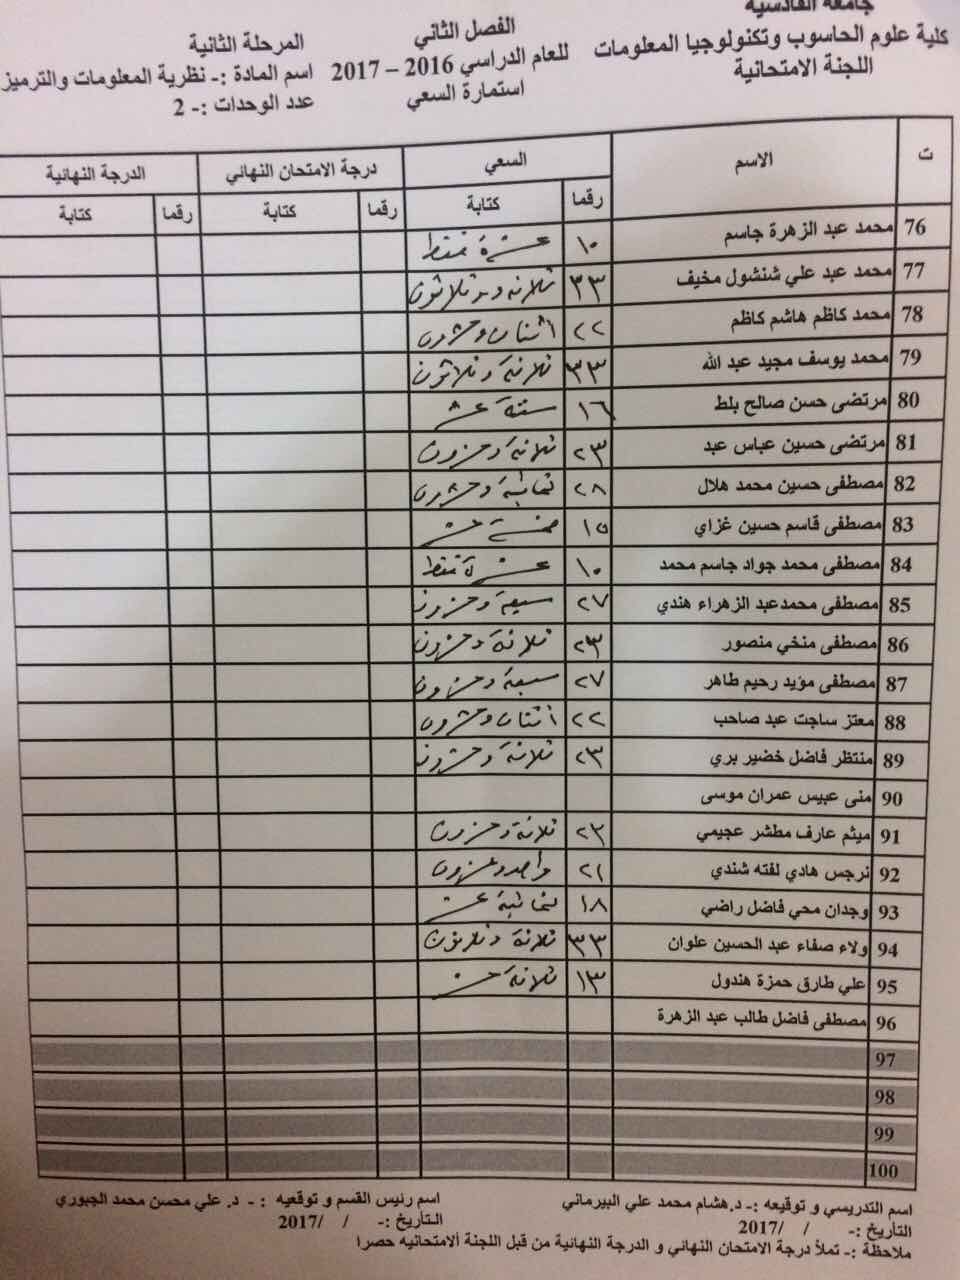 جامعة القادسية
كلية علوم الحاسوب وتكنولوجيا المعلومات
اللجنة الامتحانية
الفصل الثاني
للعام الدراسي 2016 – 2017
استمارة السعي
المرحلة الثانية
اسم المادة :- نظرية المعلومات والترميز
عدد الوحدات :- 2
ت الاسم السعي درجة الامتحان النهائي الدرجة النهائية
رقما كتابة رقما كتابة رقما كتابة
76 محمد عبد الزهرة جاسم ١٠ عشرة فقط
77 محمد عبد علي شنشول مخيف ٣٣ ثلاثة وثلاثون
78 محمد كاظم هاشم كاظم ٢٢ اثنان وعشرون
79 محمد يوسف مجيد عبد الله ٣٣ ثلاثة وثلاثون
80 مرتضى حسن صالح بلط ١٦ ستة عشر
81 مرتضى حسين عباس عبد ٢٣ ثلاثة وعشرون
82 مصطفى حسين محمد هلال ٢٨ ثمانية وعشرون
83 مصطفى قاسم حسين غزاي ١٥ خمسة عشر
84 مصطفى محمد جواد جاسم محمد ١٠ عشرة فقط
85 مصطفى محمدعبد الزهراء هندي ٢٧ سبعة وعشرون
86 مصطفى منخي منصور ٢٣ ثلاثة وعشرون
87 مصطفى مؤيد رحيم طاهر ٢٧ سبعة وعشرون
88 معتز ساجت عبد صاحب ٢٢ اثنان وعشرون
89 منتظر فاضل خضير بري ٢٣ ثلاثة وعشرون
90 منى عبيس عمران موسى
91 ميثم عارف مطشر عجيمي ٢٣ ثلاثة وعشرون
92 نرجس هادي لفته شندي ٢١ واحد وعشرون
93 وجدان محي فاضل راضي ١٨ ثمانية عشر
94 ولاء صفاء عبد الحسين علوان ٣٣ ثلاثة وثلاثون
95 علي طارق حمزة هندول ١٣ ثلاثة عشر
96 مصطفى فاضل طالب عبد الزهرة
97
98
99
100
اسم التدريسي و توقيعه :- د.هشام محمد علي البيرماني
التأريخ :- / / 2017
اسم رئيس القسم و توقعيه :- د. علي محسن محمد الجبوري
التأريخ :- / /2017
ملاحظة :- تملأ درجة الامتحان النهائي و الدرجة النهائية من قبل اللجنة ألامتحانيه حصرا